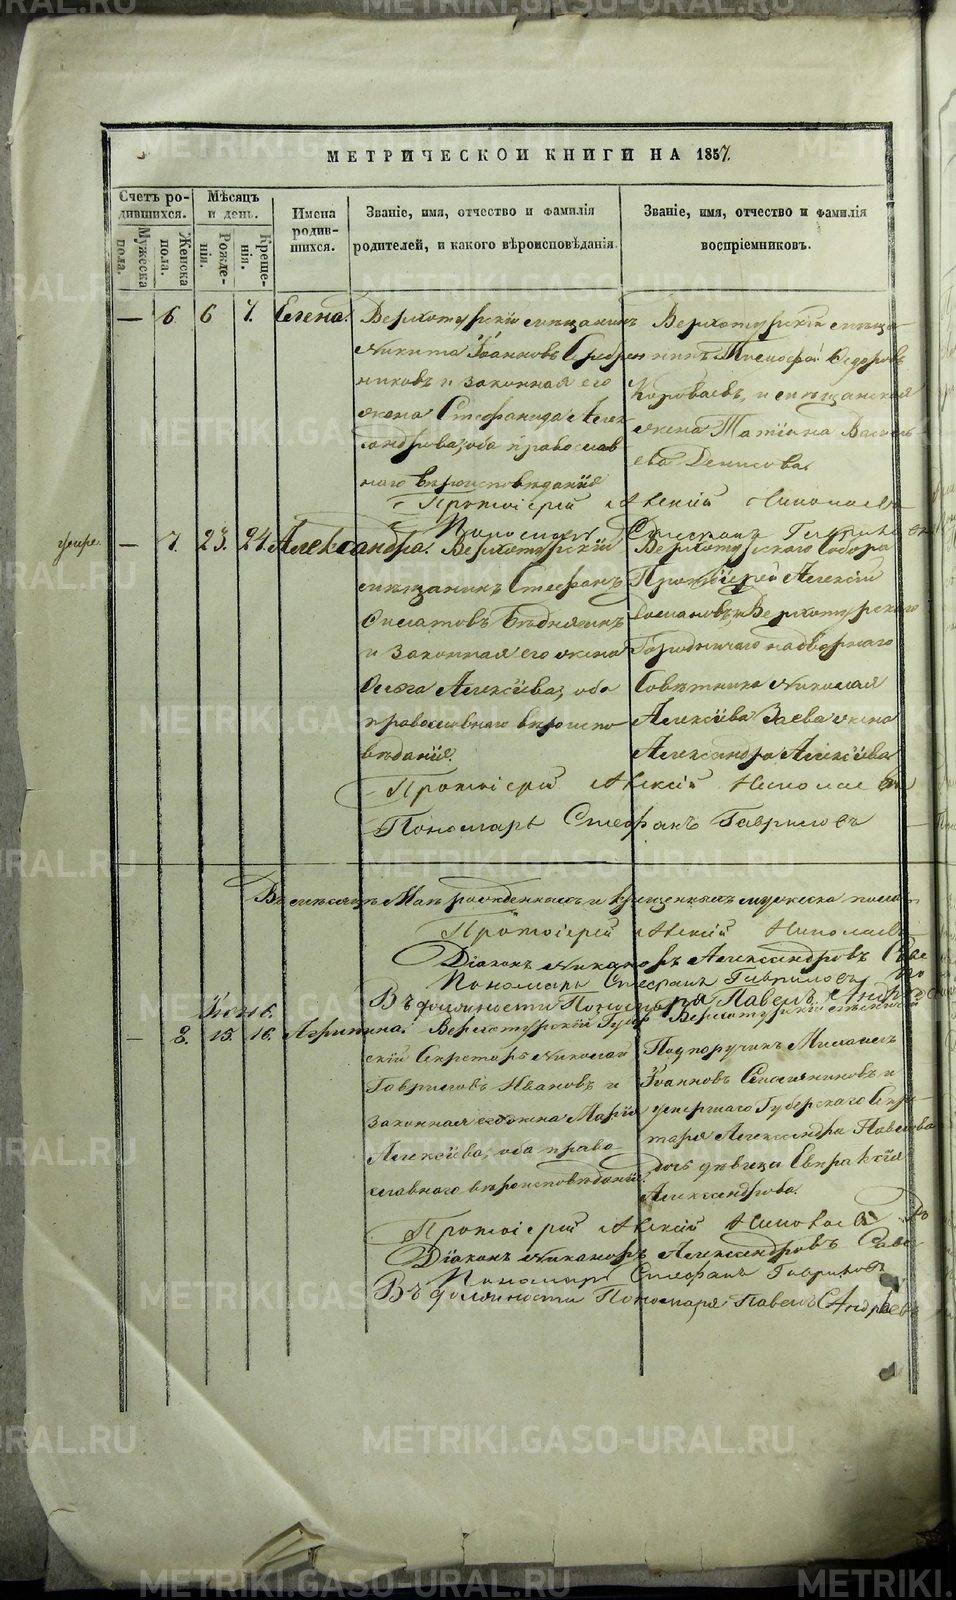 МЕТРИЧЕСКОЙ КНИГИ НА 1857.
Счетъ родившихся.
Мужеска пола.
Женска пола.
Мѣсяцъ и день.
Рожденія.
Крещенія.
Имена родившихся.
Званіе, имя, отчество и фамилія родителей, и какого вѣроисповѣданія.
Званіе, имя, отчество и фамилія воспріемниковъ.
— 6 6 7. Елена.
Верхотурскій мѣщанинъ
Никита Іоанновъ Серебрен
никовъ и законная его
жена Стефанида Алек
сандрова, оба православ
наго вѣроисповѣданія
Верхотурскій мѣща-
нинъ Тимофей Ѳедоровъ
Короваевъ, и мѣщанская
жена Татіана Василь
ева Денисова.
Протоіерей Алексій Николаевъ
Пономарь Стефанъ Гавриловъ
умре.
— 7. 23. 24. Александра.
Верхотурскій
мѣщанинъ Стефанъ
и законная его жена
Ольга Алексѣева, оба
православнаго вѣроиспо-
вѣданія.
Верхотурскаго Собора
Протоіерей Алексій
Верхотурскаго
Городничаго надворнаго
Совѣтника Николая
Алексѣева Заева жена
Александра Алексѣева
Протоіерей Алексій Николаевъ
Пономарь Стефанъ Гавриловъ
Въ мѣсяцѣ Маѣ рожденныхъ и крещенныхъ мужеска пола
Протоіерей Алексій Николаевъ
Діаконъ Никаноръ Александровъ
Пономарь Стефанъ Гавриловъ
Въ должности Пономаря Павелъ Андреевъ
Іюнь.
— 8. 15. 16. Агрипина.
Верхотурскій Губерн
скій Секретарь Николай
Гавриловъ Ивановъ и
законная его жена Марія
Алексѣева, оба право
славнаго вѣроисповѣданія.
Верхотурскій
Подпоручикъ Михаилъ
Іоанновъ и
умершаго Губерскаго Секре-
таря Александра Павлова
дочь дѣвица Евпраксія
Александрова.
Протоіерей Алексій Николаевъ
Діаконъ Никаноръ Александровъ
Пономарь Стефанъ Гавриловъ
Въ должности Пономаря Павелъ Андреевъ
METRIKI.GASO-URAL.RU